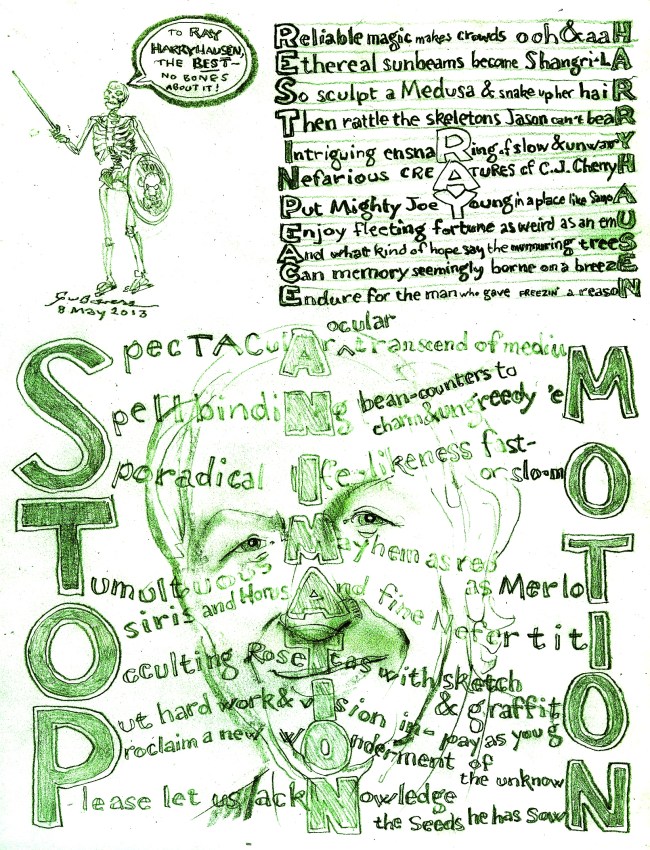 TO RAY
HARRYHAUSEN,
THE BEST—
NO BONES
ABOUT IT!
8 May 2013
Reliable magic makes crowds ooh & aaH
Ethereal sunbeams become Shangri-LA
So sculpt a Medusa & snake up her haiR
Then rattle the skeletons Jason can't beaR
Intriguing ensnaRing of slow & unwarY
Nefarious CREATURES of C.J. CherryH
Put Mighty Joe Young in a place like
Enjoy fleeting fortune as weird as an emU
And what kind of hope say the murmuring treeS
Can memory seemingly borne on a breezE
Endure for the man who gave FREEZIN' a reasoN
ocular
SpecTACulAr ^ transcend of mediuM
Spellbinding bean-counters to
charm & ungreedy 'eM
SporadicaI life-likeness fast-
or slo-mO
Tumultuous Mayhem as red
as MerloT
Osiris and Horus And fine NefertitI
Occulting RoseTtas with sketch
& graffitI
Put hard work & vIsion in- pay as you gO
Proclaim a new wOnderment of
the unknowN
Please let us ackNowledge
the Seeds he has SowN